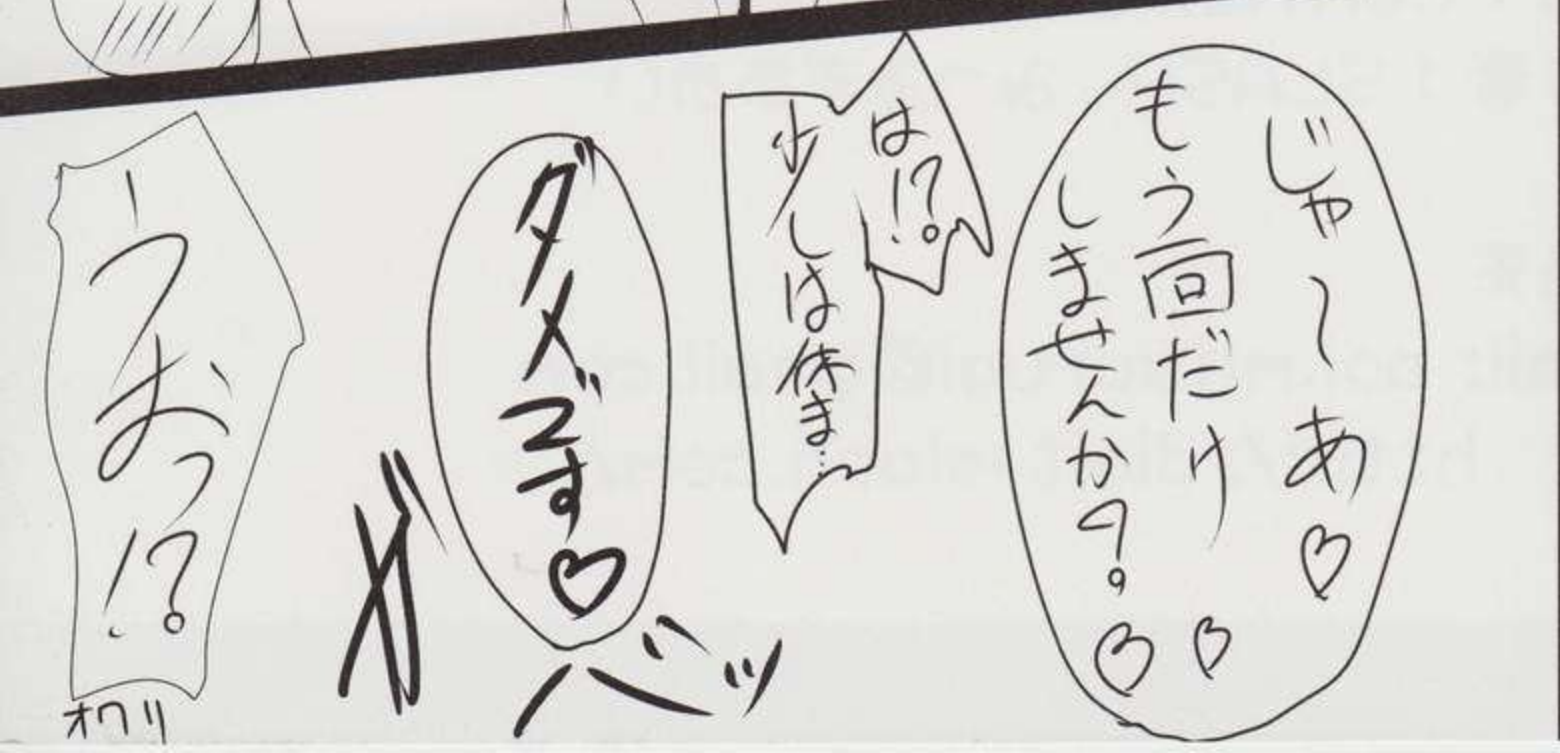 じゃ～あ♡
もう一回だけ♡
しませんか?♡
は!?
少しは休ま…
ダメです♡
ガバッ
うおっ!?
オワリ